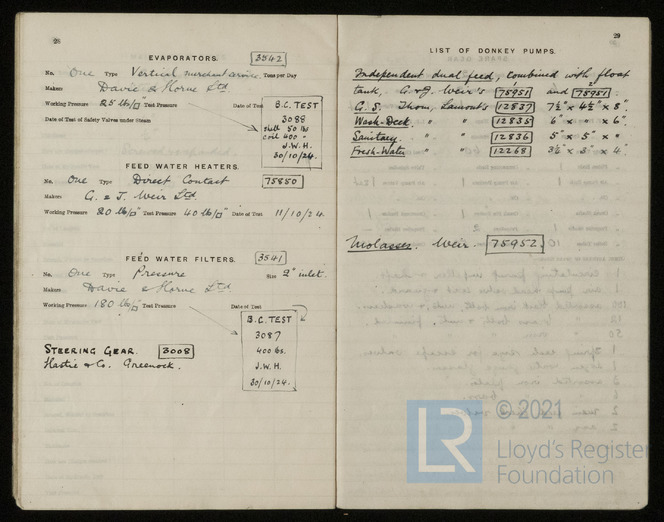 28
EVAPORATORS. 3542
No. One Type Vertical merchant service Tons per Day
Makers Davie & Horne Ltd
Working Pressure 25 lb/□" Test Pressure Date of Test
Date of Test of Safety Valves under Steam
B.C. TEST
3088
shell 50 lbs
coil 400 "
J.W.H.
30/10/24.
FEED WATER HEATERS.
No. One Type Direct Contact 75850
Makers G. & J. Weir Ltd.
Working Pressure 20 lb/□" Test Pressure 40 lb/□" Date of Test 11/10/24.
FEED WATER FILTERS. 3541
No. One Type Pressure Size 2" inlet.
Makers Davie & Horne Ltd
Working Pressure 180 lb/□" Test Pressure Date of Test
B.C. TEST
3087
400 lbs.
J.W.H.
30/10/24.
STEERING GEAR. 3008
Hastie & Co. Greenock.
29
LIST OF DONKEY PUMPS.
Independent dual feed, combined with float
tank, G. & J. Weir's 75951 and 75951.
G.S. Thom, Lamont's 12837 7½" x 4½" x 8".
Wash-Deck " " 12835 6" x " x 6".
Sanitary. " " 12836 5" x 5" x "
Fresh-Water " " 12268 3½" x 3" x 4".
Molasses. Weir. 75952.
© 2021
LR
Lloyd's Register
Foundation